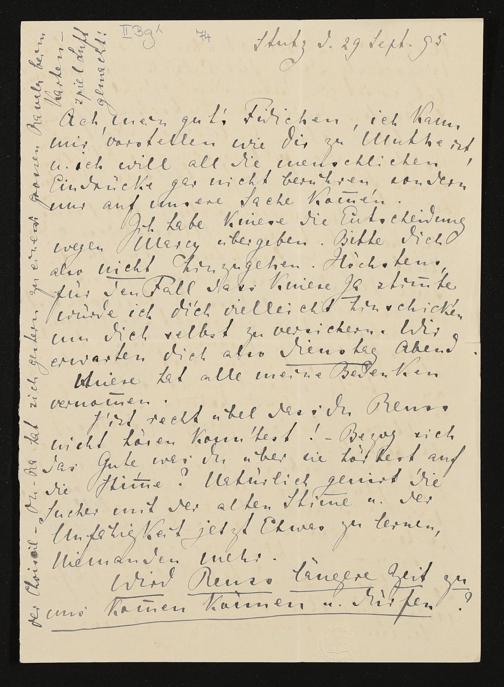 Stuttg d. 29 Sept. 95
Ach mein gut's Fidichen, ich kann
mir vorstellen wie Dir zu Muthe ist,
u. ich will all die menschlichen
Eindrücke gar nicht berühren sondern
nur auf unsere Sache kom̄en.
Ich habe Kniese die Entscheidung
wegen Marcy übergeben. Bitte Dich
also nicht hinzugehen. Höchstens,
für den Fall dass Kniese Ja stim̄te
würde ich dich vielleicht hinschicken
um Dich selbst zu versichern. Wir
erwarten Dich also Dienstag Abend.
Kniese hat alle meine Bedenken
vernom̄en.
S'ist recht übel dass du Reuss
nicht hören kon̄test! – Bezog sich
das Gute was du über sie hörtest auf
die Stim̄e? Natürlich genirt die
Sucher mit der alten Stim̄e u. der
Unfähigkeit jetzt Etwas zu lernen,
Niemanden mehr.
Wird Reuss längere Zeit zu
uns kom̄en kön̄en u. dürfen?
hat sich gestern zu einem grossen
Karten-
spiel Luft
gemacht!